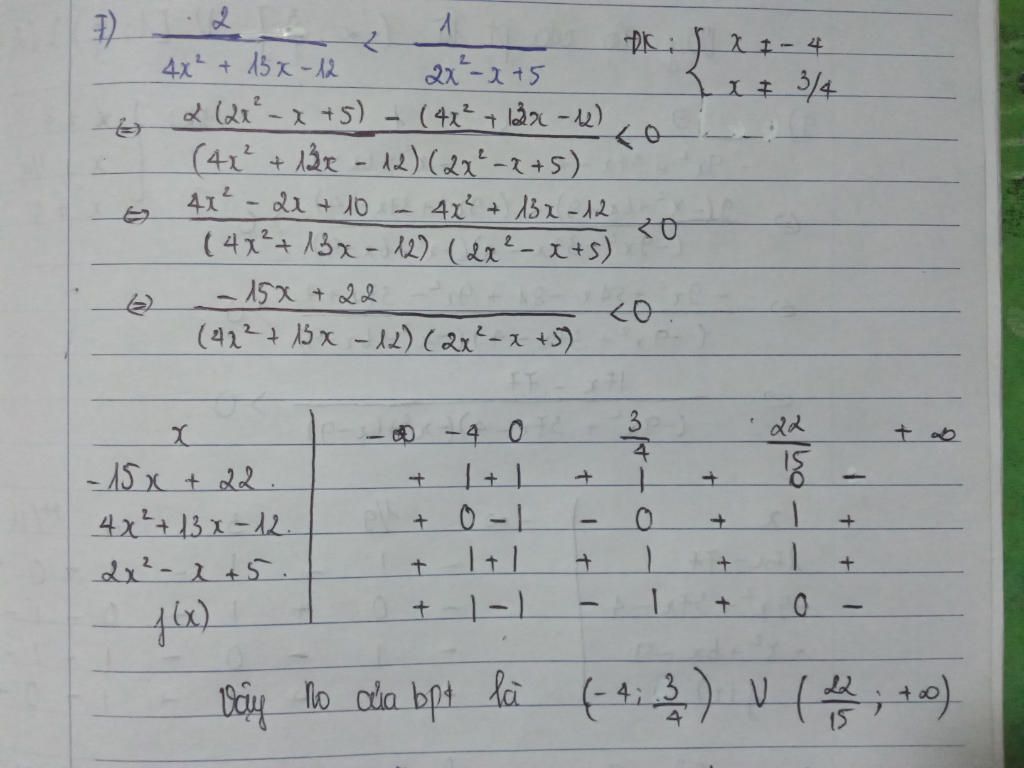 7) 2 / (4x² + 13x - 12) < 1 / (2x² - x + 5) ĐK: { x ≠ - 4
x ≠ 3/4
⇔ (2(2x² - x + 5) - (4x² + 13x - 12)) / ((4x² + 13x - 12)(2x² - x + 5)) < 0
⇔ (4x² - 2x + 10 - 4x² + 13x - 12) / ((4x² + 13x - 12)(2x² - x + 5)) < 0
⇔ (-15x + 22) / ((4x² + 13x - 12)(2x² - x + 5)) < 0
x | -∞ -4 0 3/4 22/15 +∞
-15x + 22. | + | + | + | + 0 -
4x² + 13x - 12. | + 0 - | - 0 + | +
2x² - x + 5. | + | + | + | + | +
f(x) | + | - | - | + 0 -
Vậy no của bpt là (-4; 3/4) V (22/15; +∞)